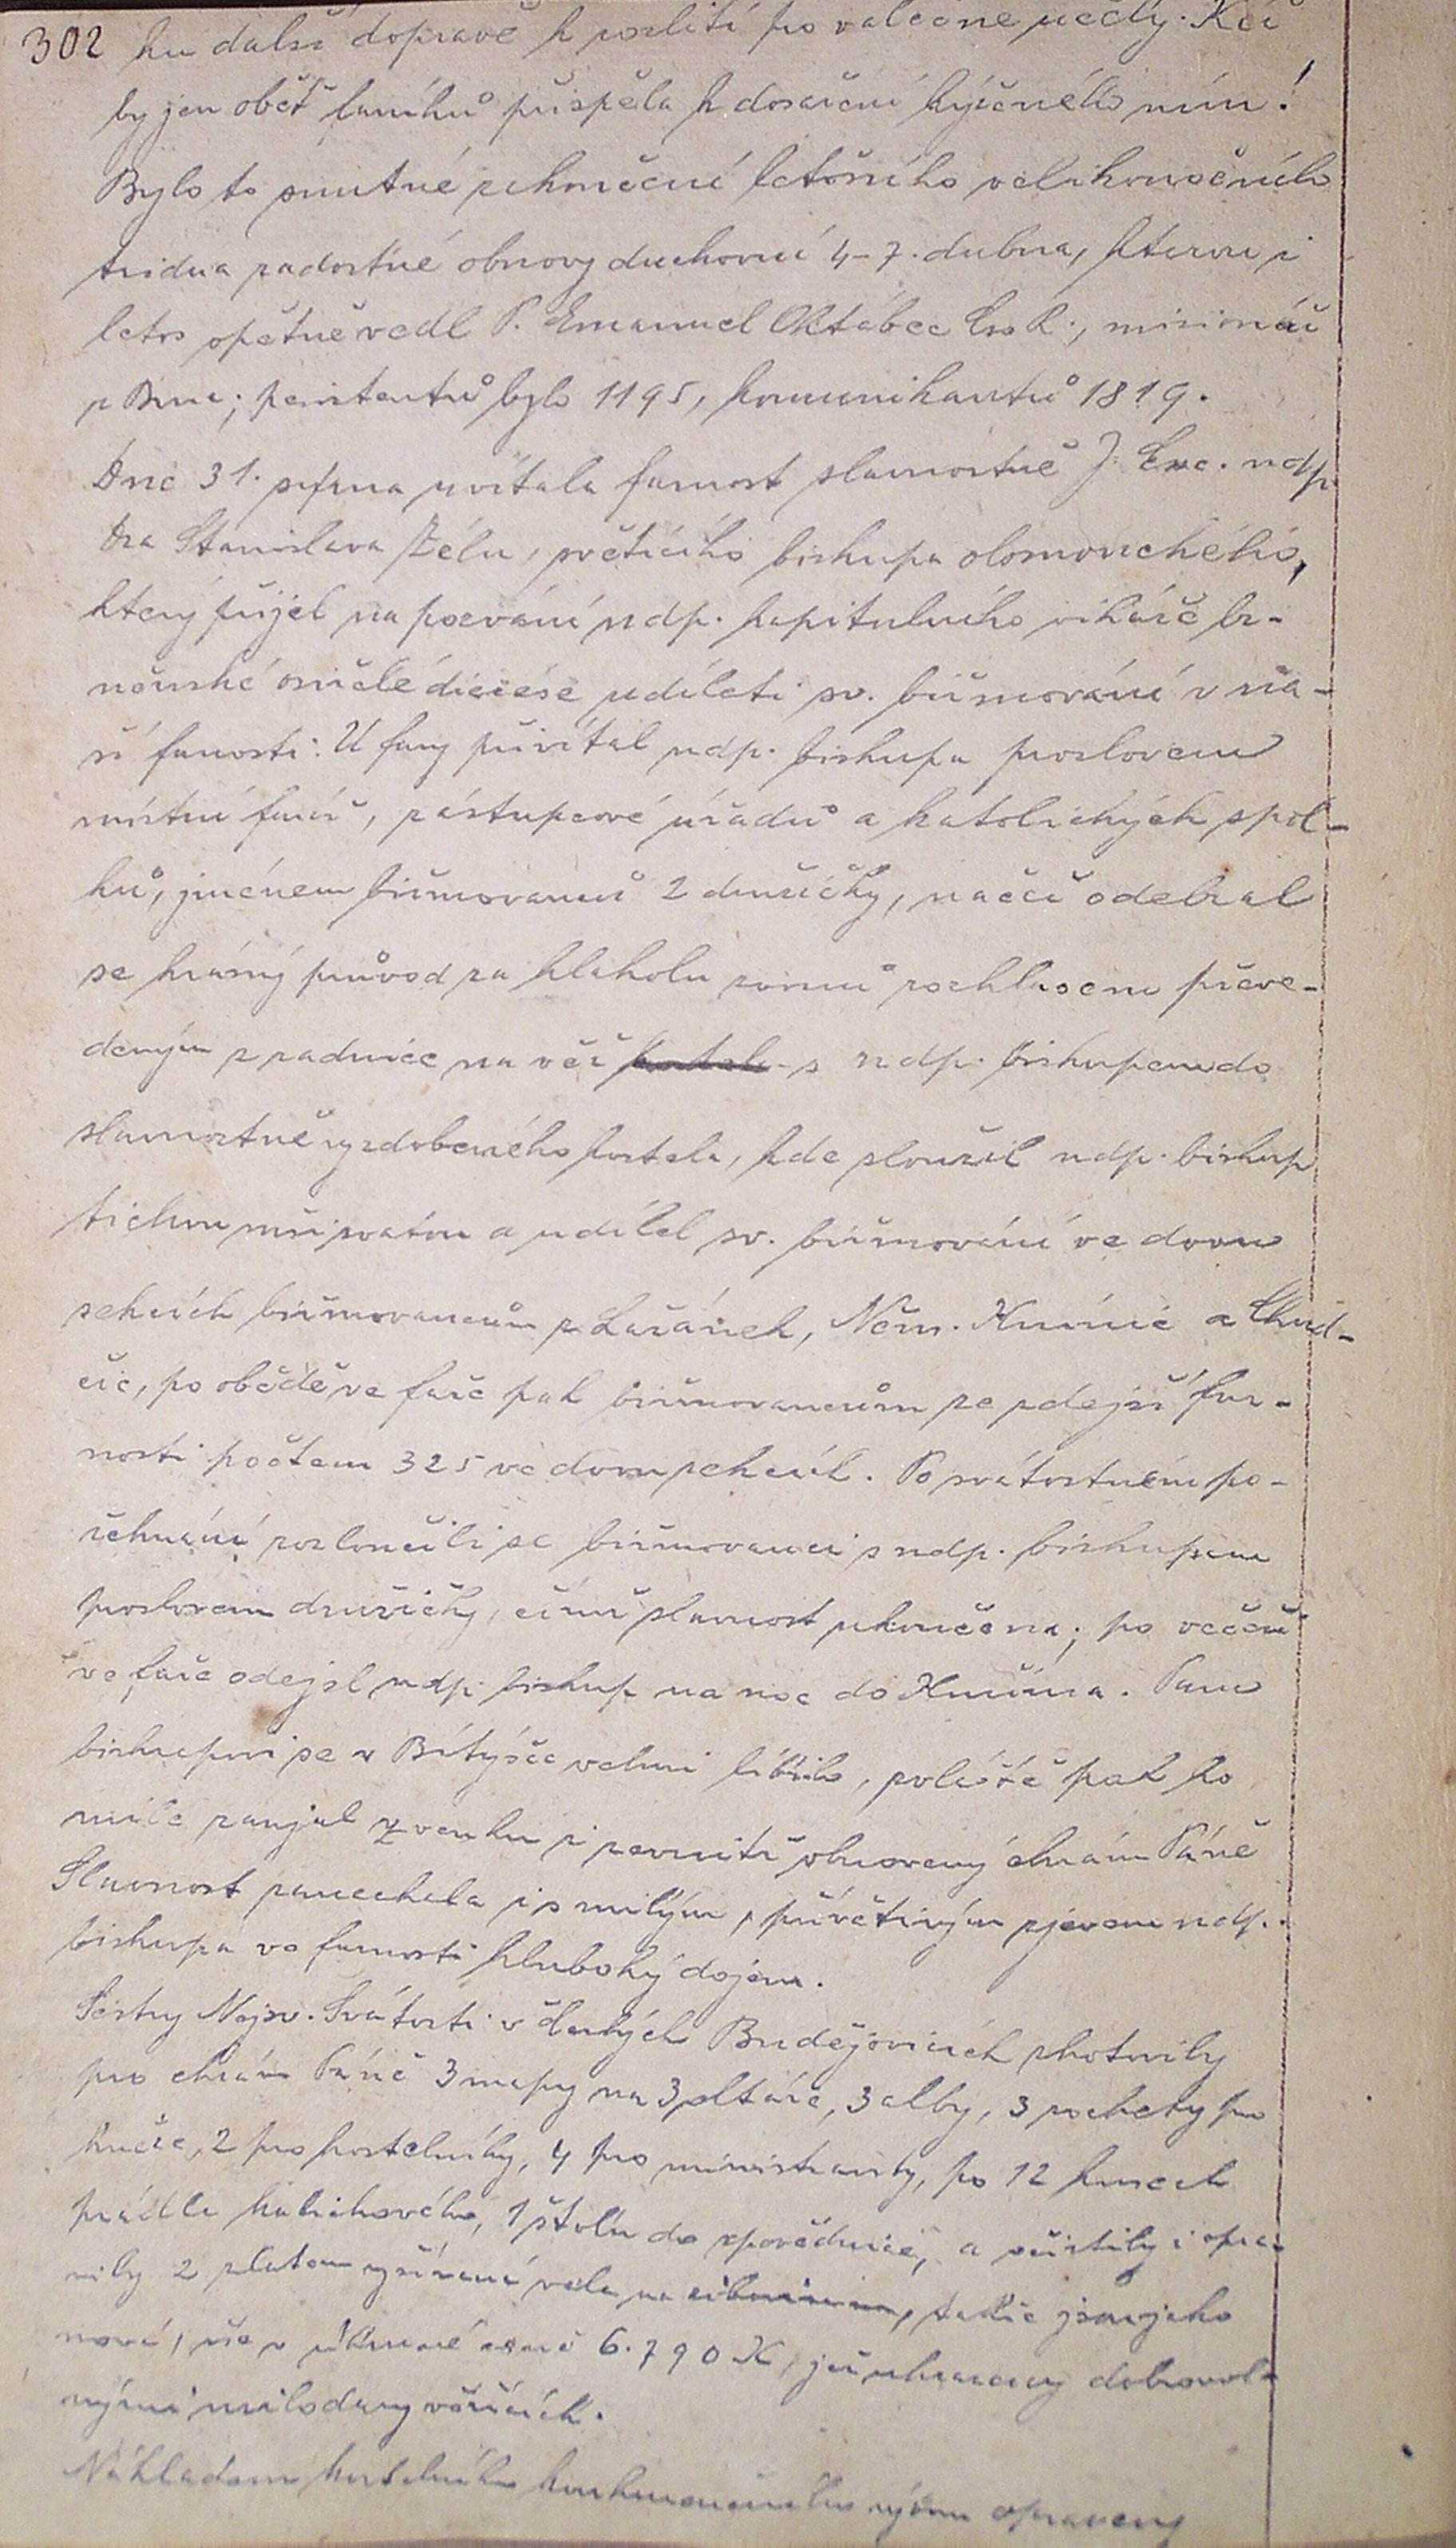 302 ku další dopravě k rozlití pro válečné účely. Kéž
by jen oběť farníků přispěla k dosažení kýženého míru!
Bylo to smutné zakončení letošního velikonočního
tridua radostné obnovy duchovní 4-7. dubna, kterou i
letos opětně vedl P. Emanuel Oktábec CssR., misionář
z Brna; penitentů bylo 1195, komunikantů 1819.
Dne 31. srpna uvítala farnost slavnostně J. Exc. ndp.
Dra Stanislava Zélu, světícího biskupa olomouckého,
který přijel na pozvání ndp. kapitulního vikáře br-
něnské osiřelé diecése uděleti sv. biřmování v na-
ší farnosti. U fary přivítal ndp. biskupa proslovem
místní farář, zástupcové úřadů a katolických spol-
ků, jménem biřmovanců 2 družičky, načež odebral
se krásný průvod za hlaholu zvonů rozhlasem převe-
deným z radnice na věž s ndp. biskupem do
slavnostně vyzdobeného kostela, kde sloužil ndp. biskup
tichou mši svatou a udílel sv. biřmování ve dvou
sekcích biřmovancům z Lažánek, Něm. Knínic a Chud-
čic, po obědě ve faře pak biřmovancům ze zdejší far-
nosti počtem 325 ve dvou sekcích. Po svátostném po-
žehnání rozloučili se biřmovanci s ndp. biskupem
proslovem družičky, čímž slavnost ukončena; po večeři
ve faře odejel ndp. biskup na noc do Kuřima. Panu
biskupovi se v Bítýšce velmi líbilo, zvláště pak ho
mile zaujal zvenku i zevnitř obnovený chrám Páně
Slavnost zanechala i s milým, přívětivým zjevem ndp.
biskupa ve farnosti hluboký dojem.
Sestry Nejsv. Svátosti v Českých Budějovicích zhotovily
pro chrám Páně 3 mapy na 3 oltáře, 3 alby, 3 rochety pro
kněze, 2 pro kostelníky, 4 pro ministranty, po 12 kusech
prádla kalichového, 1 štolu do zpovědnice, a vyčistily i opra-
vily 2 zlatem vyšívaná vela na ciborium, takže jsou jako
nové, vše v úhrnné ceně 6.790 K, jež uhrazeny dobrovol-
nými milodary věřících.
Nákladem kostelního konkurenčního výboru opraveny